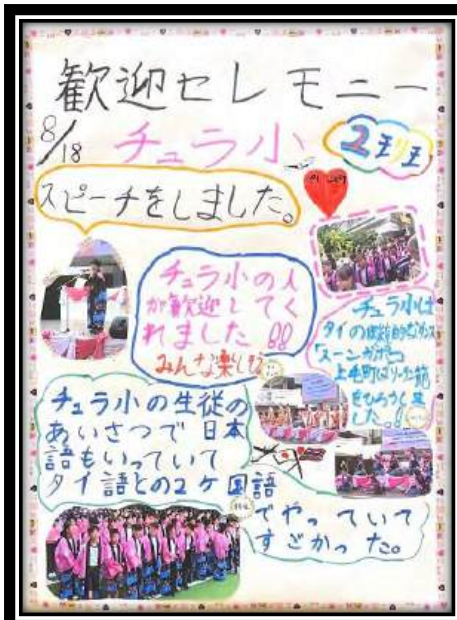 歓迎セレモニー
8/18
チュラ小
2班
スピーチをしました。
チュラ小の人
が歓迎してく
れました!!
みんな楽しむ
チュラ小は
タイの伝統的な
上毛町は
をひろうしま
した。!!
チュラ小の生徒の
あいさつで日本
語もいっていて
タイ語との2ヶ国語
でやっていて
すごかった。